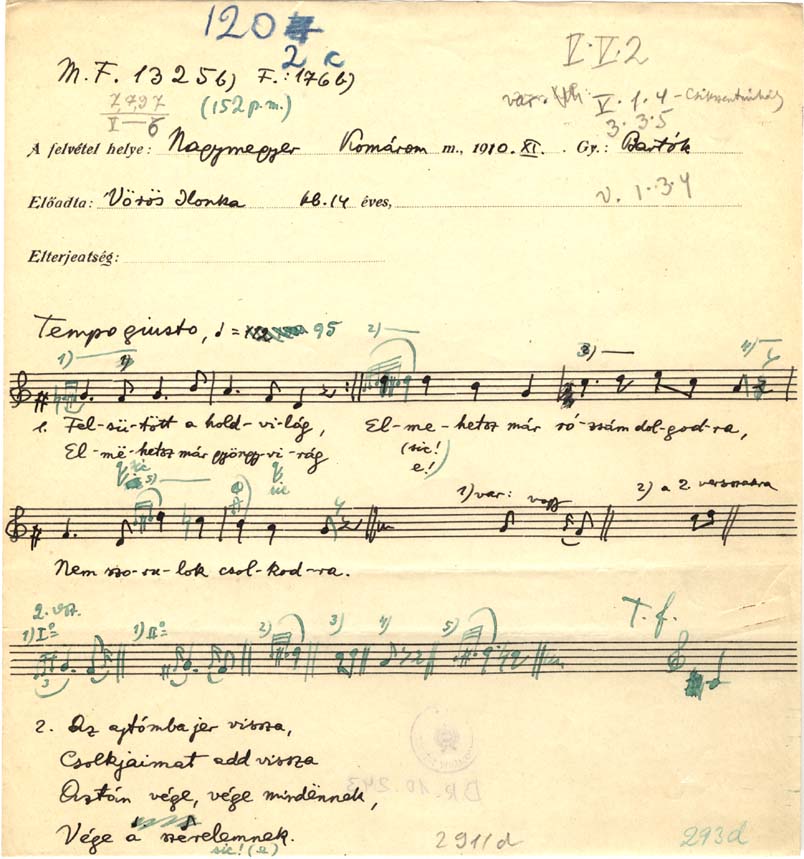 120
2 c
V.V.2
M. F. 1325 b) F.: 176 b)
7,797
I—6
(152 p.m.)
var. V.1.4 – Csíkszentmihály
3.3.5
A felvétel helye: Nagymegyer Komárom m., 1910. XI. Gy.: Bartók
V. 1.3.4
Előadta: Vörös Ilonka kb. 14 éves,
Elterjeatség:
Tempo giusto, ♩ = 95
1) 1) 2) 3) 4)
1. Fel-sü-tött a hold-vi-lág, El-me-hetsz már ró-zsám dol-god-ra,
El-më-hetsz már gyöngy-vi-rág (sic!
e!)
sic 5) sic 1) var: vagy 2) a 2. versszakra
Nem szo-ru-lok csol-kod-ra.
2. vsz.
1) I° 1) II° 2) 3) 4) 5) T. f.
3
2. Az ajtómba jer vissza,
Csolkjaimat add vissza
Osztán vége, vége mindënnek,
Vége a szerelemnek.
sic! (e)
BR. 10.243
2911d
293d